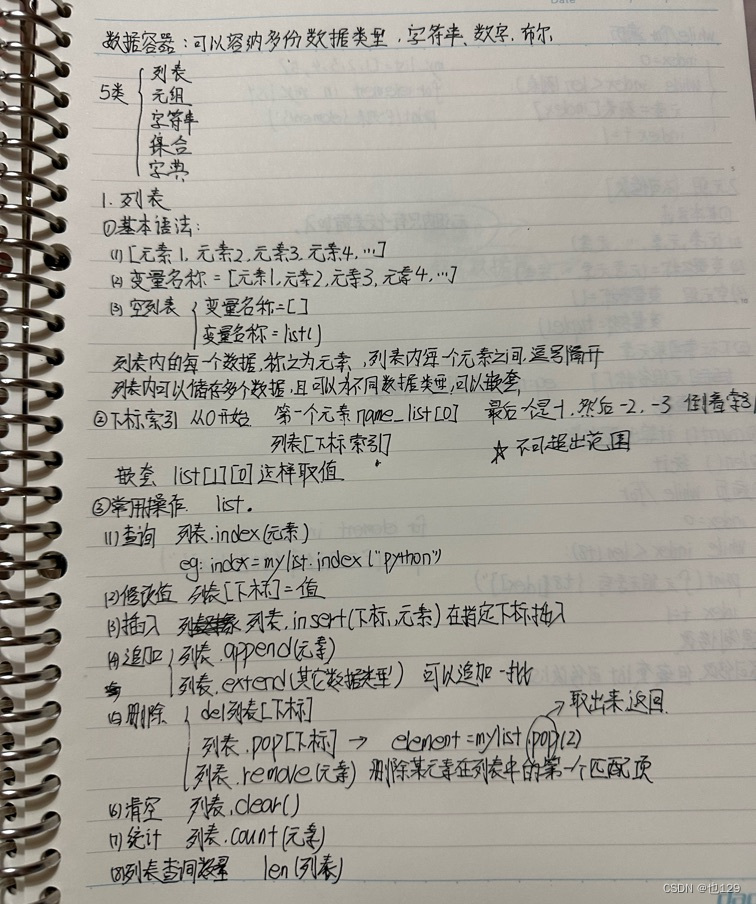 数据容器：可以容纳多份数据类型，字符串、数字、布尔
5类
列表
元组
字符串
集合
字典
1. 列表
①基本语法：
(1) [元素1, 元素2, 元素3, 元素4, …]
(2) 变量名称 = [元素1, 元素2, 元素3, 元素4, …]
(3) 空列表 变量名称=[]
变量名称=list()
列表内的每一个数据,称之为元素,列表内每一个元素之间,逗号隔开
列表内可以储存多个数据,且可以为不同数据类型,可以嵌套
②下标索引 从0开始 第一个元素name_list[0] 最后一个是-1,然后-2,-3 倒着索引
列表[下标索引] ☆不可超出范围
嵌套 list[1][0]这样取值
③常用操作. list.
(1)查询 列表.index(元素)
eg: index=mylist.index("python")
(2)修改值 列表[下标]=值
(3)插入 列表.insert(下标,元素)在指定下标插入
(4)追加 列表.append(元素)
列表.extend(其它数据类型) 可以追加一批
取出来返回
(5)删除 del列表[下标]
列表.pop[下标] → element=mylist.pop(2)
列表.remove(元素) 删除某元素在列表中的第一个匹配项
(6)清空 列表.clear()
(7)统计 列表.count(元素)
(8)列表查询数量 len(列表)
CSDN @也129